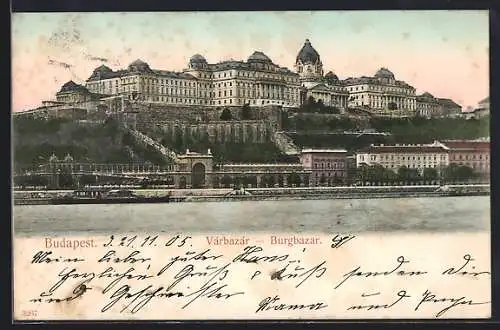 Budapest. 3. 21. 11. 05. Várbazár — Burgbazar.
Mein lieber guter Hans!
herzlichen Gruß & Kuß senden Dir
und Geschwister Mama und